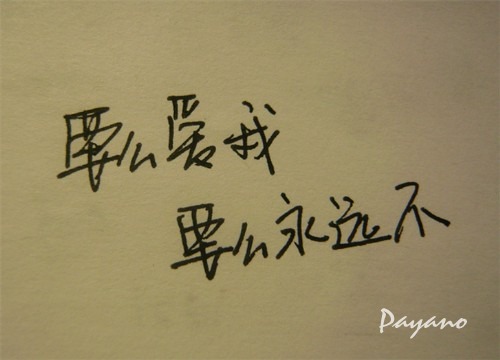 要么爱我
要么永远不
Payano